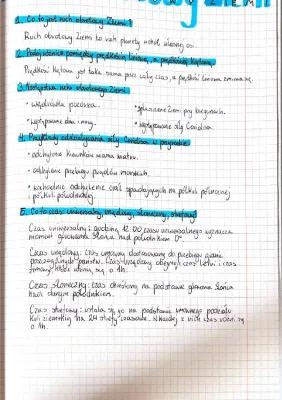 1. Co to jest ruch obrotowy Ziemi?
Ruch obrotowy Ziemi to ruch planety wokół własnej osi.
2. Podaj różnicę pomiędzy prędkością liniową, a prędkością kątową.
Prędkość kątowa jest taka sama przez cały czas, a prędkość liniowa zmienia się.
3. Następstwa ruchu obrotowego Ziemi
• wędrówka pozorna. • spłaszczenie Ziemi przy biegunach.
• występowanie dnia i nocy. • występowanie siły Coriolisa.
4. Przykłady oddziaływania siły Coriolisa w przyrodzie
• odchylenie kierunków mas
• odchylenie przebiegu prądów morskich.
• wschodnie odchylenie ciał spadających na półkuli północnej
i półkuli południowej.
5. Co to czas: uniwersalny, urzędowy, słoneczny, strefowy?
Czas uniwersalny: godzinę 12:00 czasu uniwersalnego wyznacza
moment górowania Słońca nad południkiem 0°.
Czas urzędowy: czas umowny dostosowany do przebiegu granic
poszczególnych państw. Czas urzędowy obejmuje czas letni i czas
zimowy, które różnią się o 1h.
Czas słoneczny: czas określany na podstawie górowania Słońca
nad danym południkiem.
Czas strefowy: ustala się go na podstawie umownego podziału
kuli ziemskiej na 24 strefy czasowe. W każdej z nich czas różni się
o 1h.